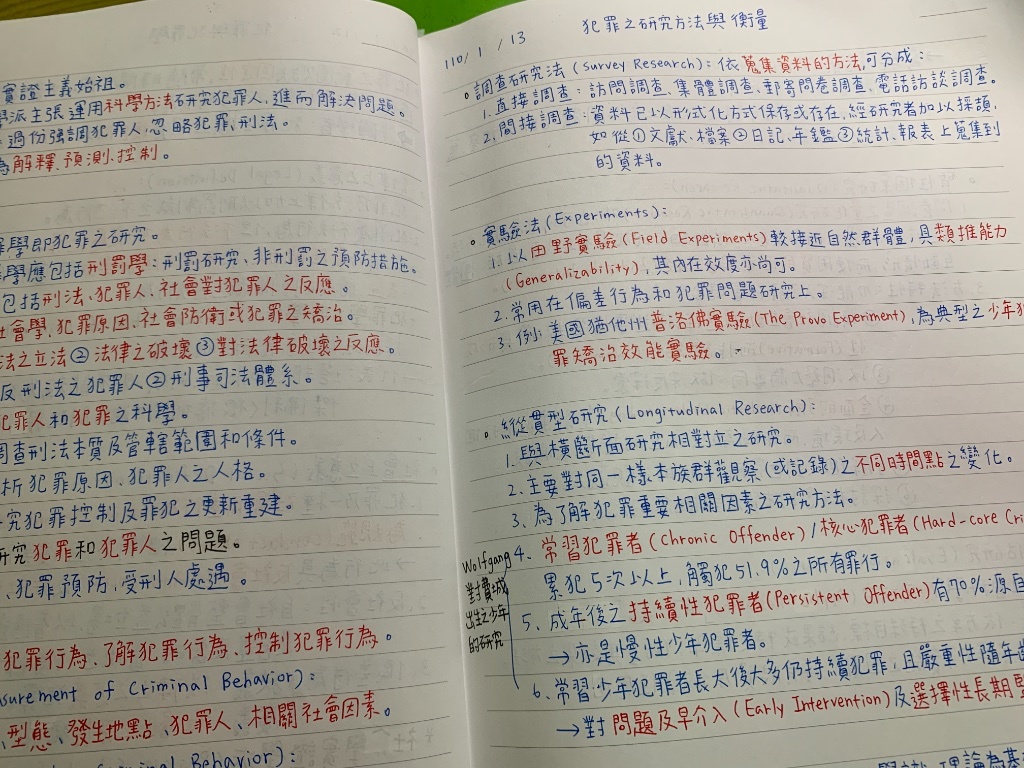 實證主義始祖。
學派主張運用科學方法研究犯罪人,進而解決問題。
過份強調犯罪人,忽略犯罪、刑法。
為解釋、預測、控制。
學即犯罪之研究。
學應包括刑罰學:刑罰研究、非刑罰之預防措施。
包括刑法、犯罪人、社會對犯罪人之反應。
社會學、犯罪原因、社會防衛或犯罪之矯治。
法之立法②法律之破壞③對法律破壞之反應。
反刑法之犯罪人②刑事司法體系。
犯罪人和犯罪之科學。
調查刑法本質及管轄範圍和條件。
析犯罪原因、犯罪人之人格。
究犯罪控制及罪犯之更新重建。
研究犯罪和犯罪人之問題。
、犯罪預防、受刑人處遇。
犯罪行為、了解犯罪行為、控制犯罪行為。
surement of Criminal Behavior):
、型態、發生地點、犯罪人、相關社會因素。
Criminal Behavior):
110/1/13
犯罪之研究方法與衡量
。調查研究法(Survey Research):依蒐集資料的方法,可分成:
1.直接調查:訪問調查、集體調查、郵寄問卷調查、電話訪談調查。
2.間接調查:資料已以形式化方式保存或存在,經研究者加以採擷,
如從①文獻、檔案②日記、年鑑③統計、報表上蒐集到
的資料。
。實驗法(Experiments):
1.以田野實驗(Field Experiments)較接近自然群體,具類推能力
(Generalizability),其內在效度亦尚可。
2.常用在偏差行為和犯罪問題研究上。
3.例:美國猶他州普洛佛實驗(The Provo Experiment),為典型之少年犯
罪矯治效能實驗。
。縱貫型研究(Longitudinal Research):
1.與橫斷面研究相對立之研究。
2.主要對同一樣本族群觀察(或記錄)之不同時間點之變化。
3.為了解犯罪重要相關因素之研究方法。
4.常習犯罪者(Chronic Offender)/核心犯罪者(Hard-core Cri
累犯5次以上,觸犯51.9%之所有罪行。
5.成年後之持續性犯罪者(Persistent Offender)有70%源自
→亦是慢性少年犯罪者。
6.常習少年犯罪者長大後大多仍持續犯罪,且嚴重性隨年
→對問題及早介入(Early Intervention)及選擇性長期
Wolfgang
對費城
出生之少年
的研究
理論為基